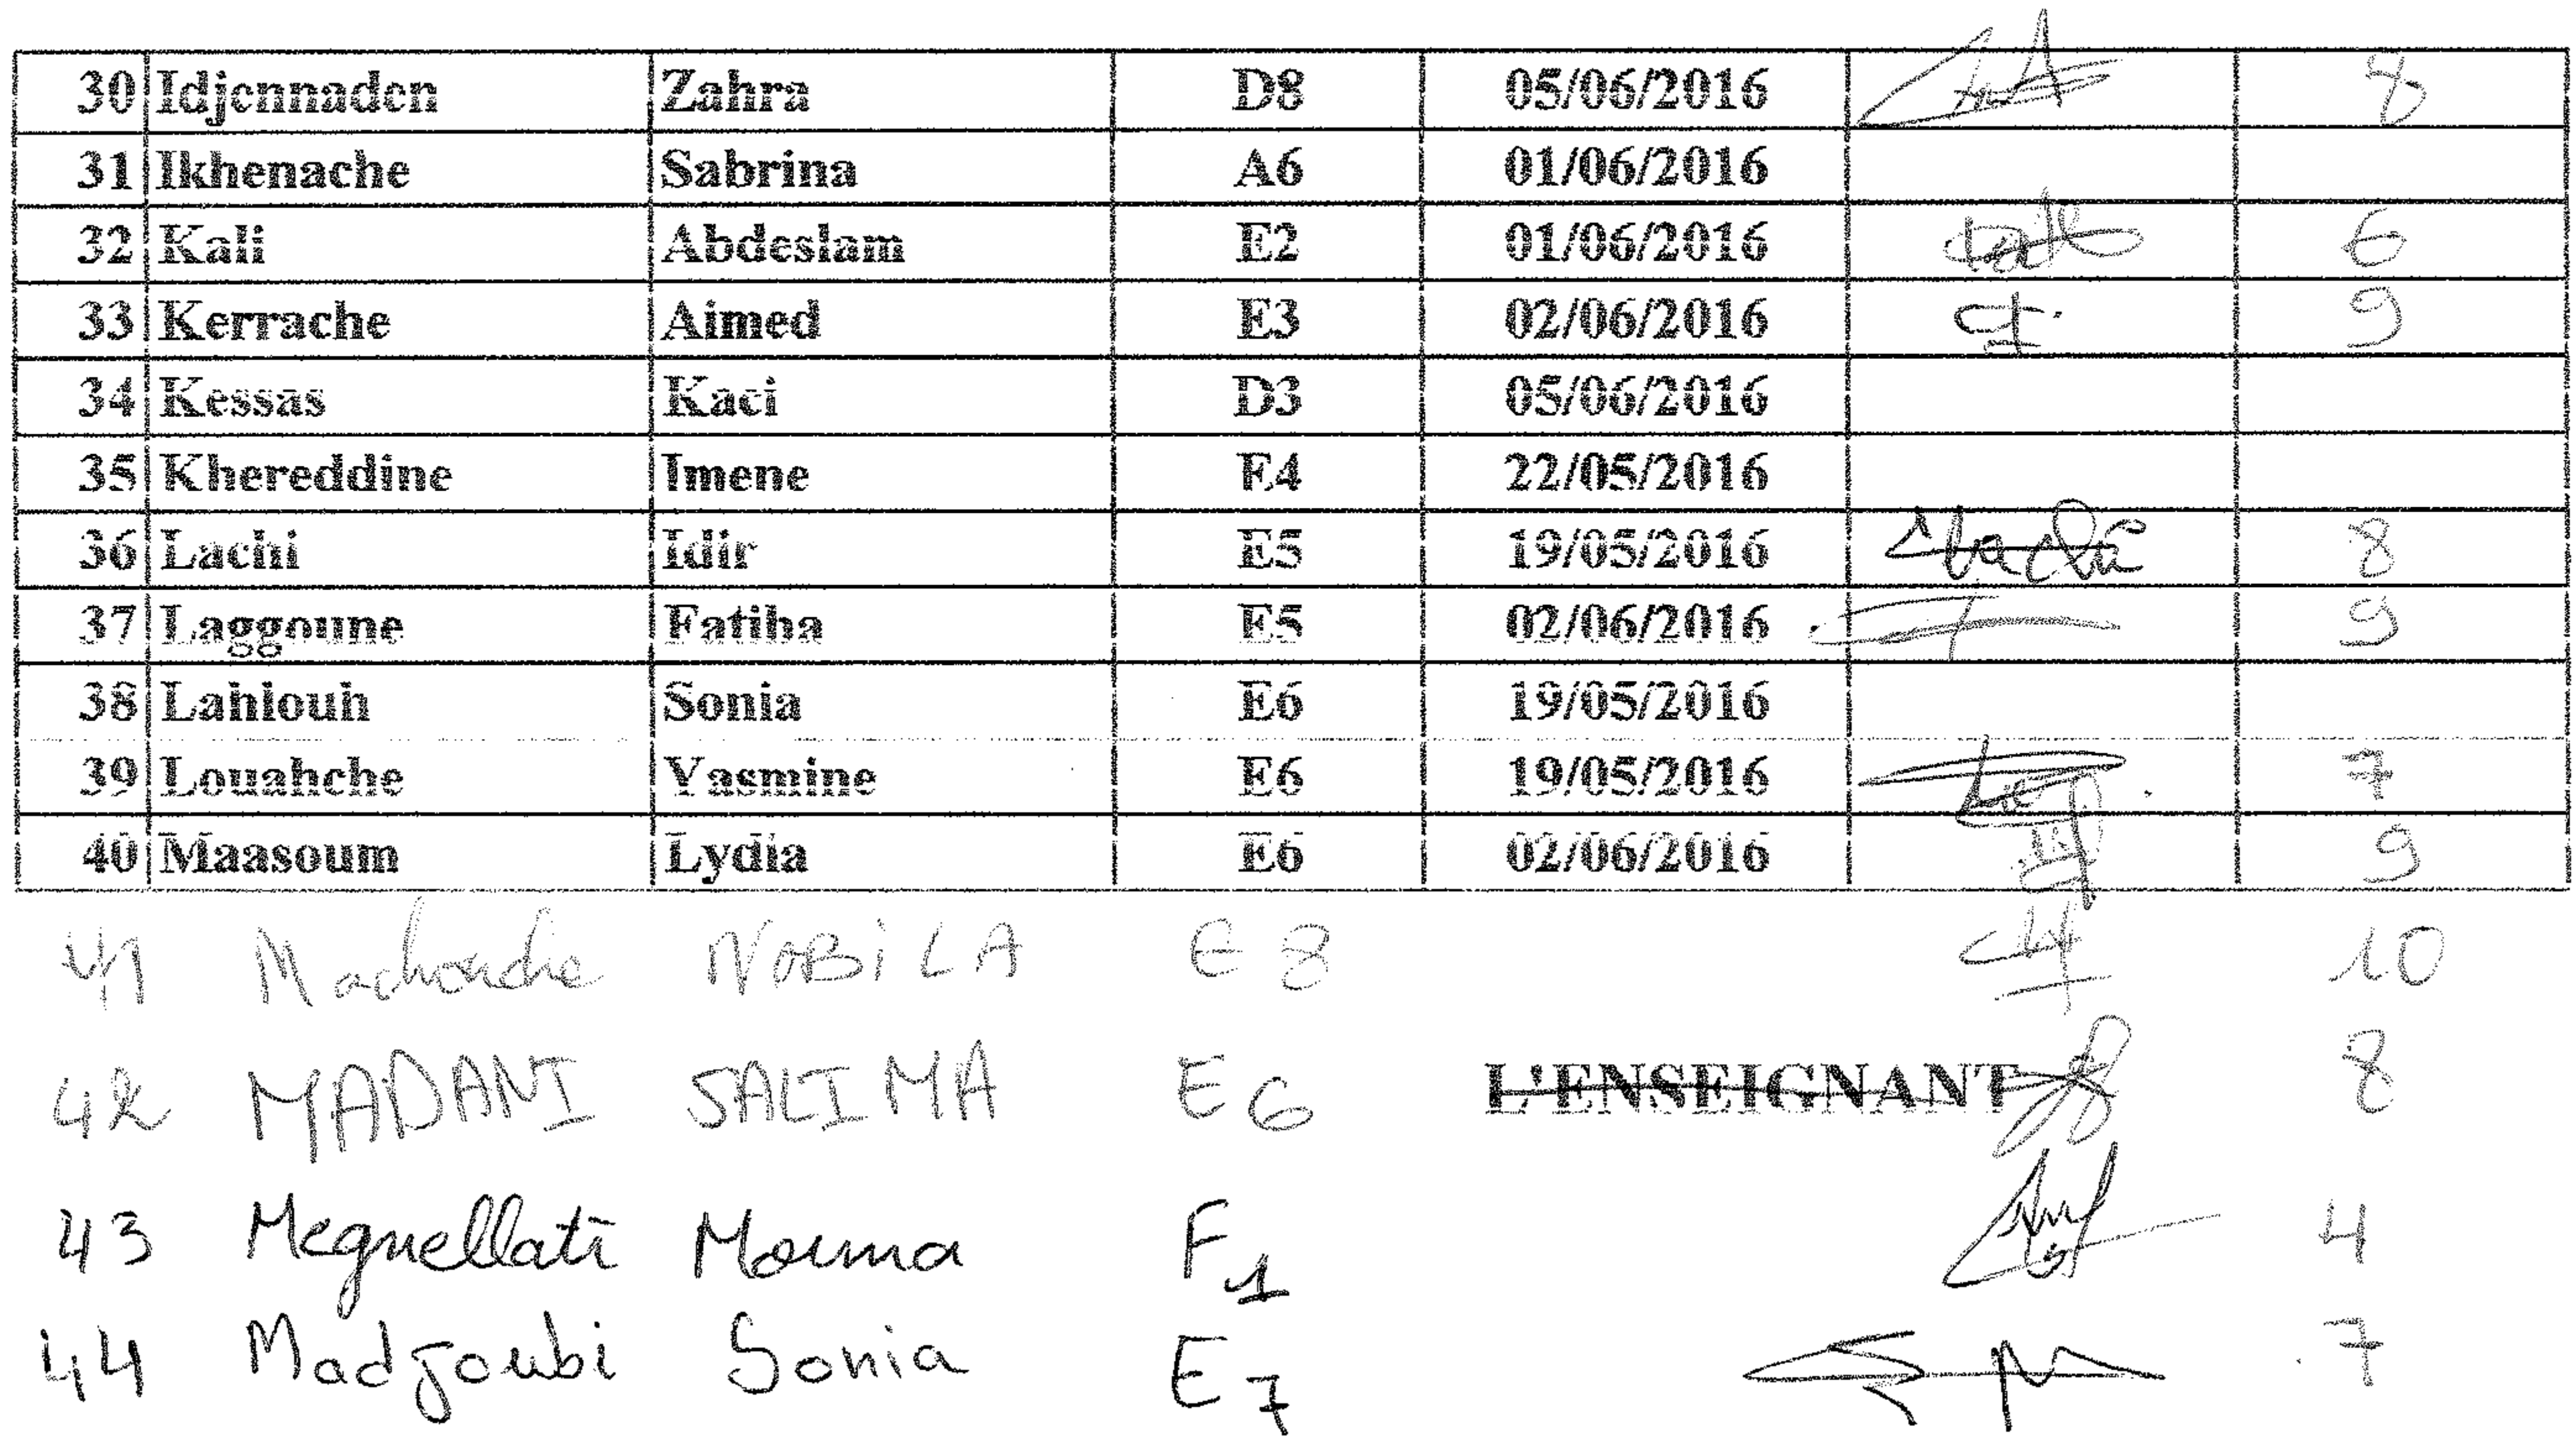 30 Idjennaden Zahra D8 05/06/2016 8
31 Ikhenache Sabrina A6 01/06/2016
32 Kali Abdeslam E2 01/06/2016 6
33 Kerrache Aimed E3 02/06/2016 9
34 Kessas Kaci D3 05/06/2016
35 Khereddine Imene E4 22/05/2016
36 Lachi Idir E5 19/05/2016 8
37 Laggoune Fatiha E5 02/06/2016 9
38 Lahlouh Sonia E6 19/05/2016
39 Louahche Yasmine E6 19/05/2016 7
40 Maasoum Lydia E6 02/06/2016 9
41 NABiLA E8 10
42 MADANI SALIMA E6 L'ENSEIGNANT 8
43 Megnellati F1 4
44 Madjoubi Sonia E7 7